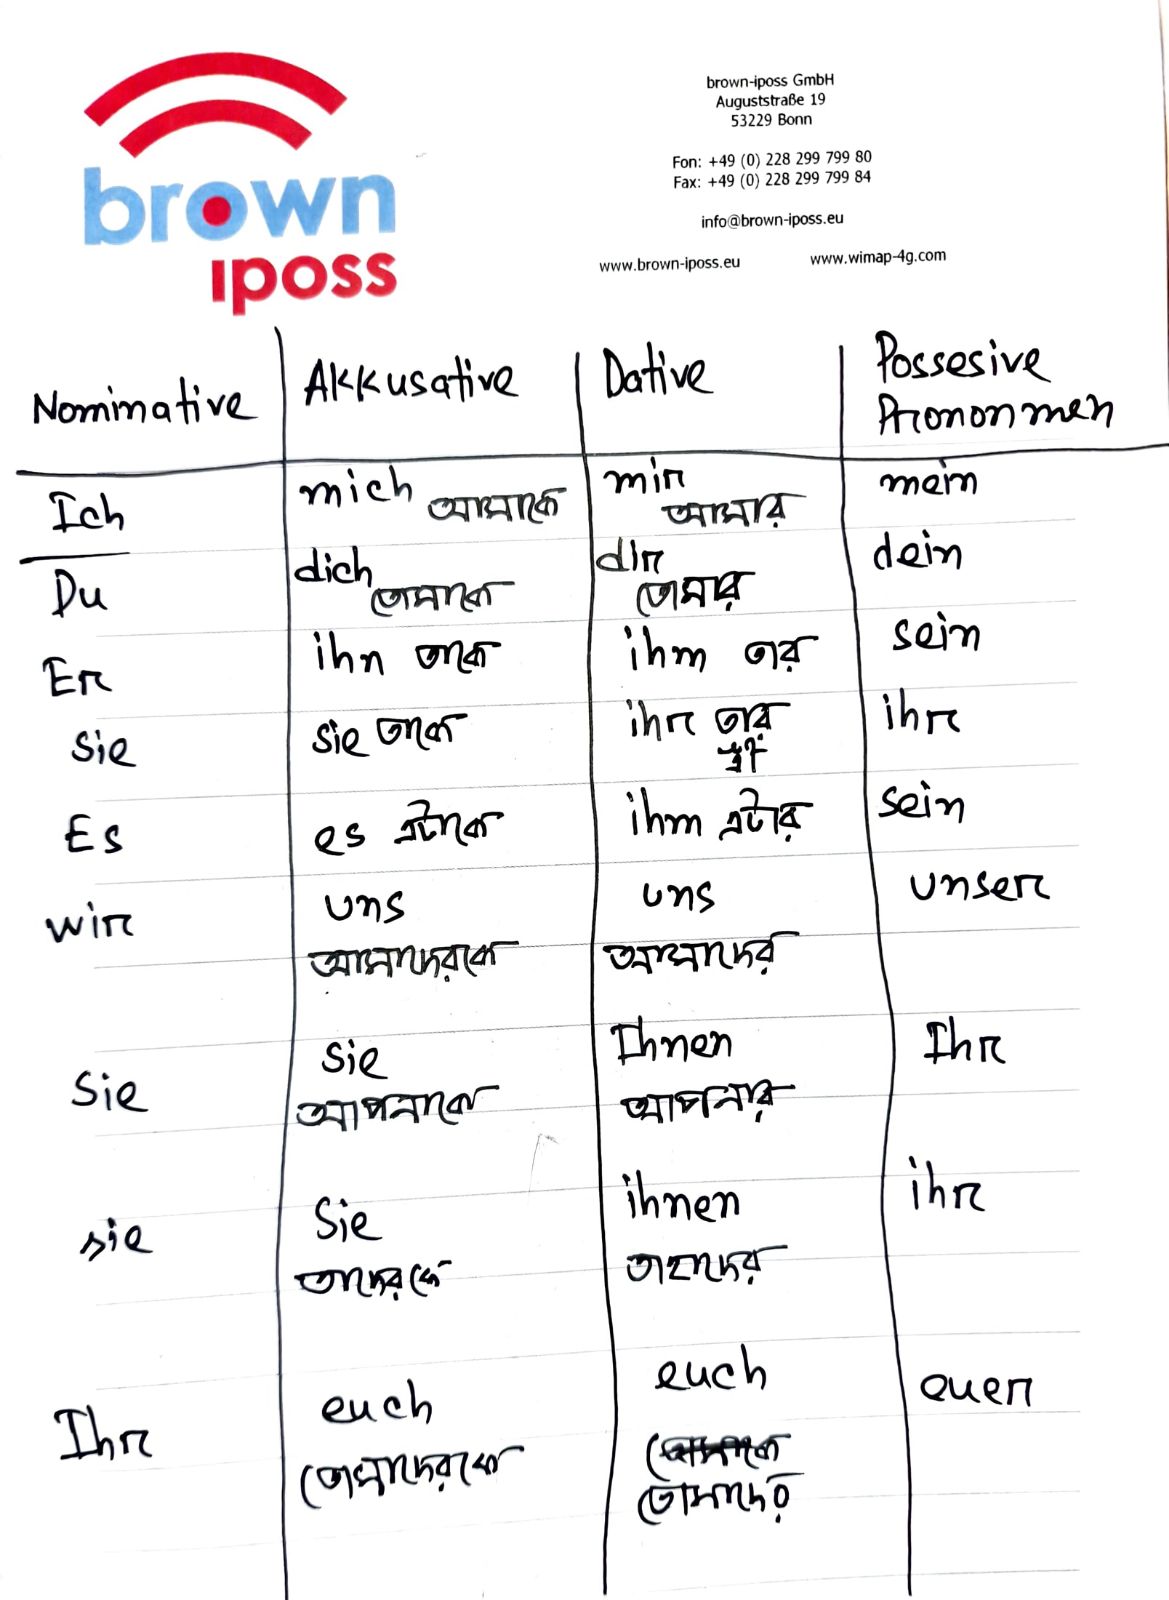 brown
iposs
brown-iposs GmbH
Auguststraße 19
53229 Bonn
Fon: +49 (0) 228 299 799 80
Fax: +49 (0) 228 299 799 84
info@brown-iposs.eu
www.brown-iposs.eu www.wimap-4g.com
Nominative Akkusative Dative Possesive Prononmen
Ich mich আমাকে mir আমার mein
Du dich তোমাকে dir তোমার dein
Er ihn তাকে ihm তার sein
sie sie তাকে ihr তার স্ত্রী ihr
Es es এটাকে ihm এটার sein
wir uns আমাদেরকে uns আমাদের unser
Sie Sie আপনাকে Ihnen আপনার Ihr
sie Sie তাদেরকে ihnen তাহাদের ihr
Ihr euch তোমাদেরকে euch তোমাদের euer